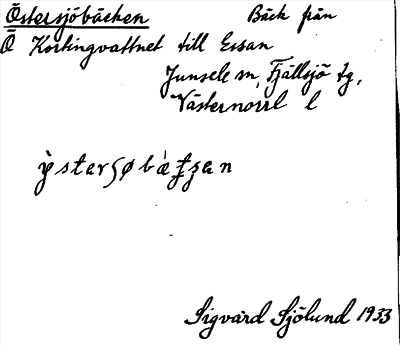 Östersjöbäcken Bäck från
Ö Kortingvattnet till Essan
Junsele sn, Fjällsjö tg,
Västernorrl l
Sigvard Sjölund 1933